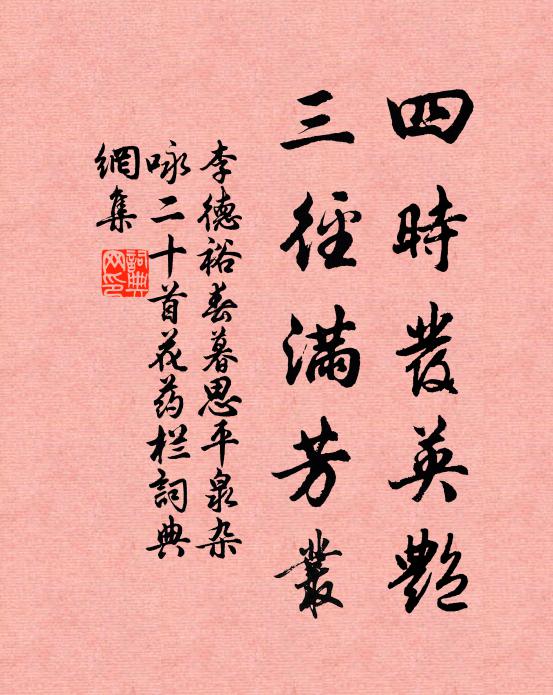 四時發英艷
三徑滿芳叢
李德裕春暮思平泉杂
咏二十首花药栏詞典
網集
詞典
网印